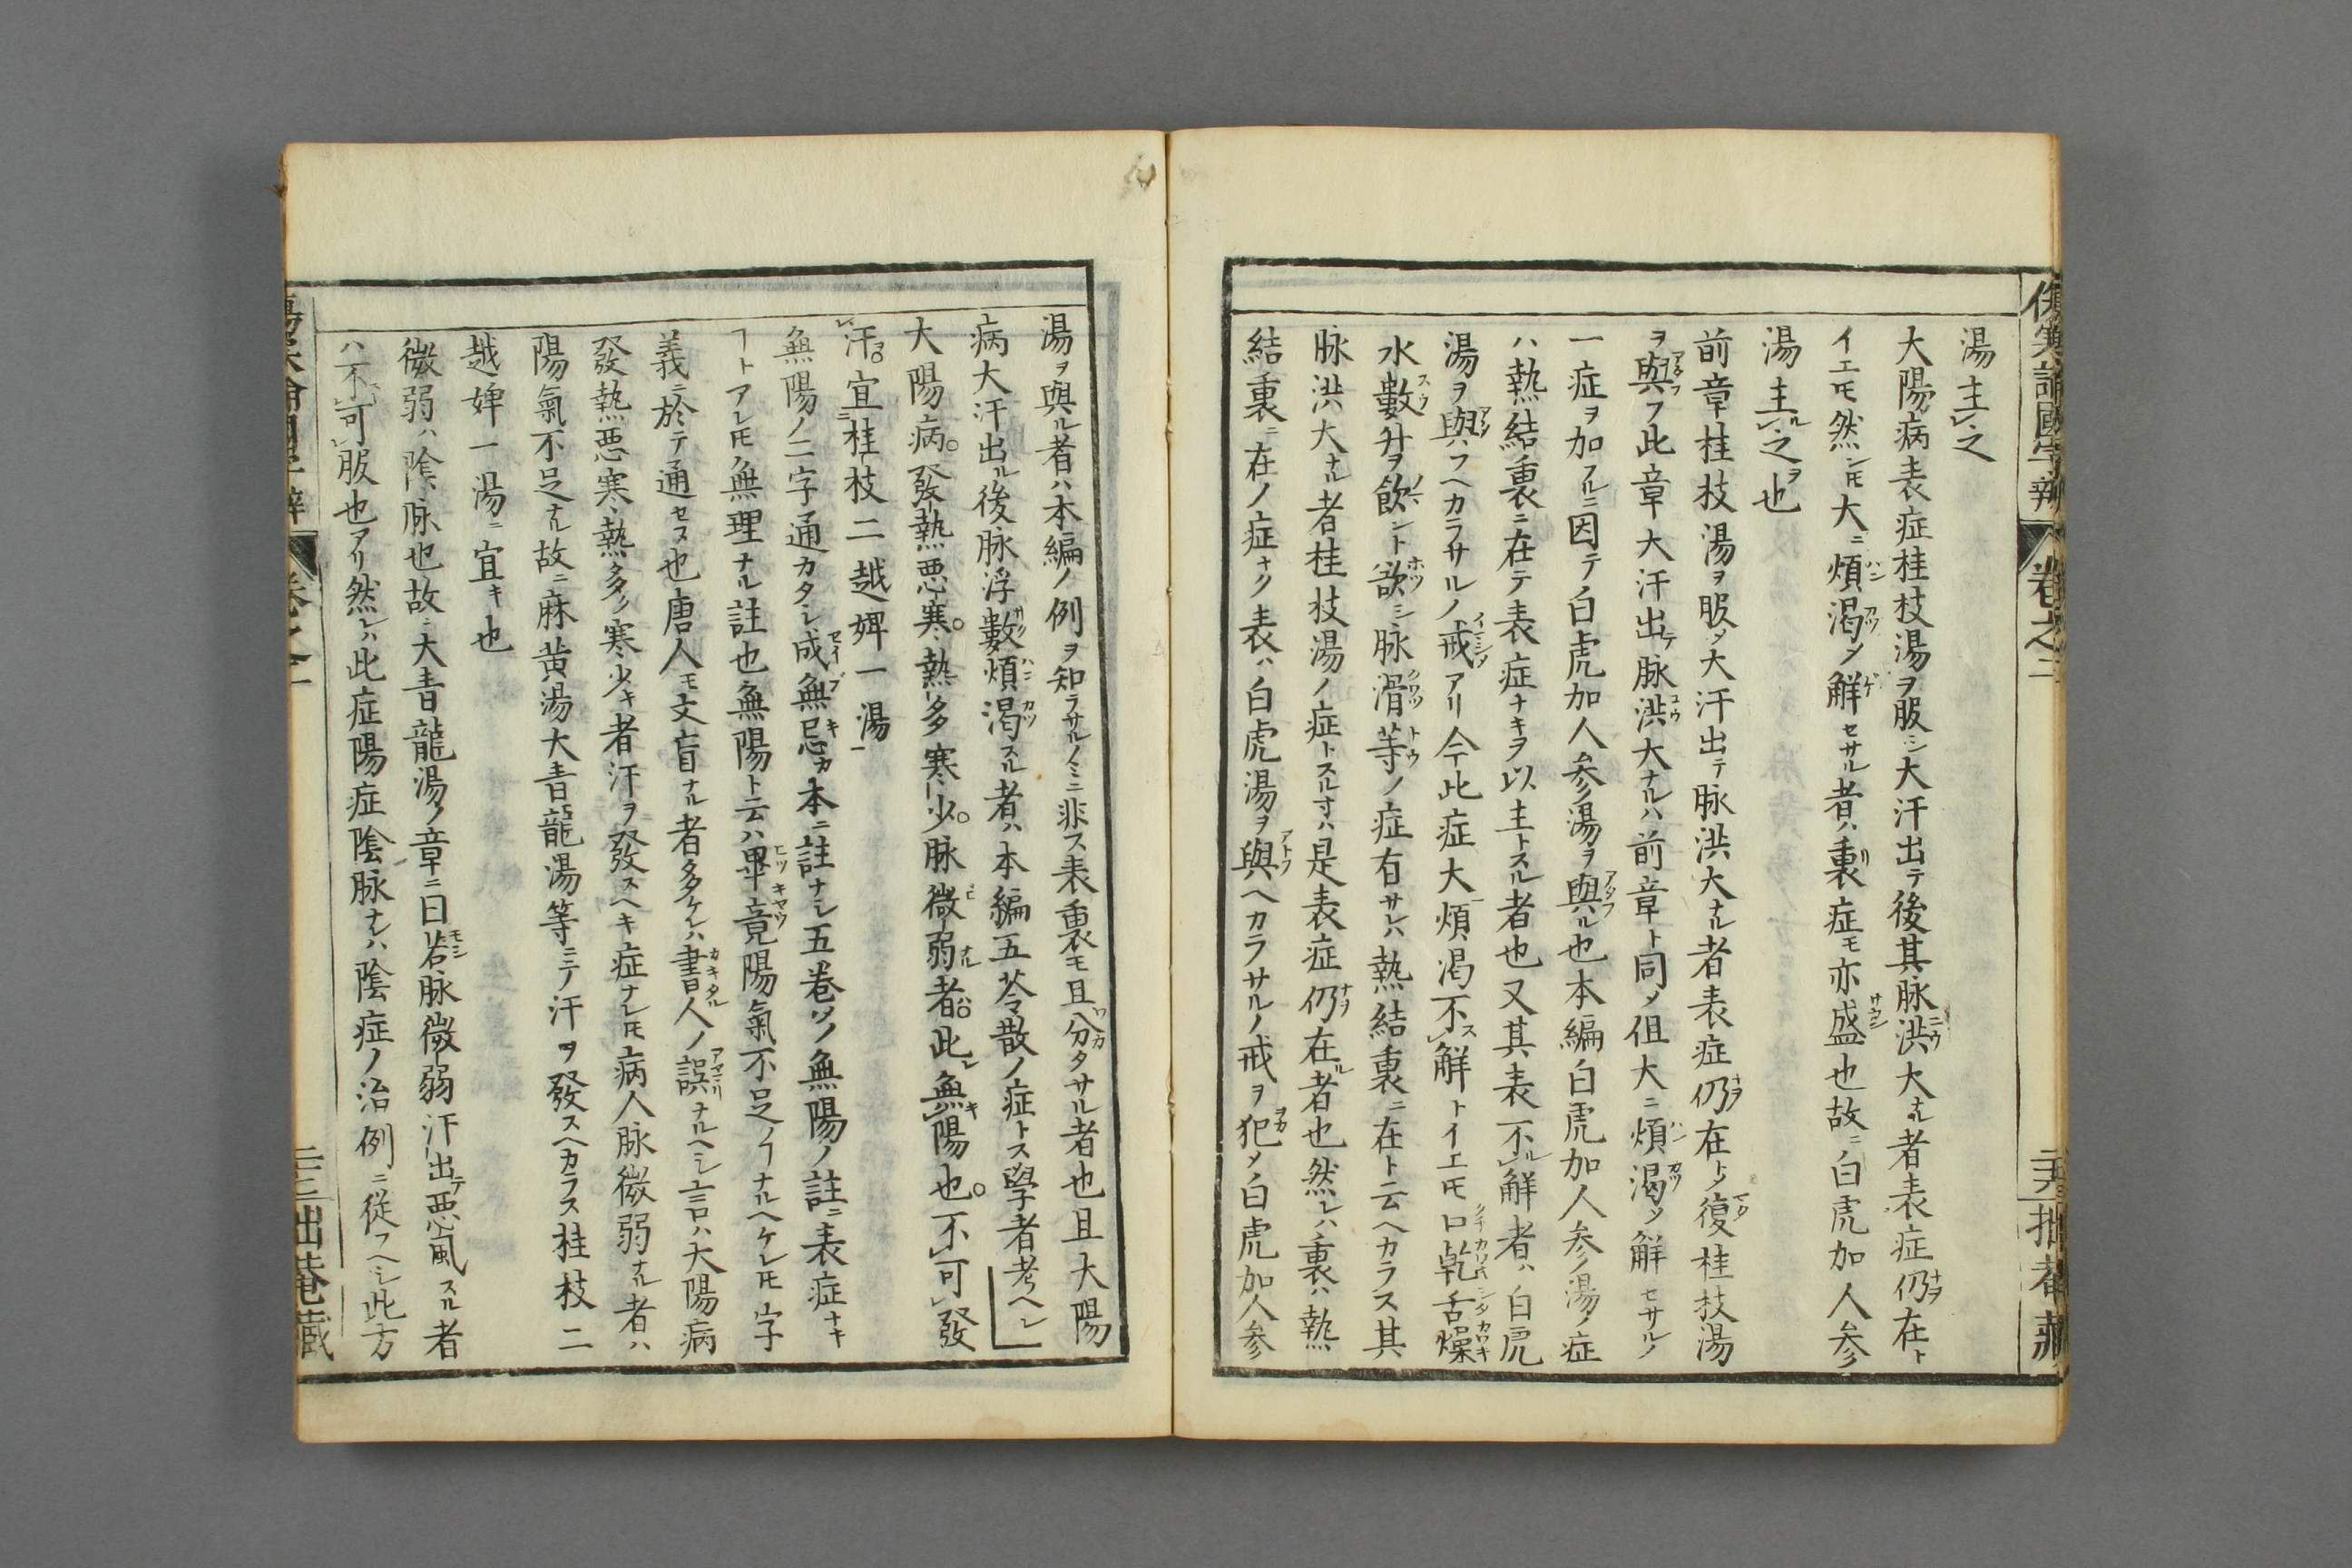 湯主之
大陽病表症桂枝湯ヲ服シ大汗出テ後其脉洪大ナル者表症仍在ト
イエ𪜈然シ𪜈大ニ煩渇乄解セサル者ハ裏症モ亦盛也故ニ白虎加人参
湯主之也
前章桂枝湯ヲ服乄大汗出テ脉洪大ナル者表症仍在ト乄復桂枝湯
ヲ與フ此章大汗出テ脉洪大ナルハ前章ト同乄但大ニ煩渇乄解セサルノ
一症ヲ加フルニ因テ白虎加人参湯ヲ與ル也本編白虎加人参湯ノ症
ハ熱結裏ニ在テ表症ナキヲ以主トスル者也又其表不解者ハ白虎
湯ヲ與フヘカラサルノ戒アリ今此症大煩渇不解トイエ𪜈口乾舌燥
水數升ヲ飲ント欲シ脉滑等ノ症有サレハ熱結裏ニ在ト云ヘカラス其
脉洪大ナル者桂枝湯ノ症トスル寸ハ是表症仍在者也然レハ裏ハ熱
結裏ニ在ノ症ナク表ハ白虎湯ヲ與ヘカラサルノ戒ヲ犯乄白虎加人参
湯ヲ與ル者ハ本編ノ例ヲ知ラサルノミニ非ス表裏モ且分タサル者也且大陽
病大汗出ル後脉浮數煩渇スル者ハ本編五苓散ノ症トス學者考ヘシ
大陽病發熱惡寒熱多寒少脉微弱者此無陽也不可發
汗宜桂枝二越婢一湯
無陽ノ二字通カタシ成無忌カ本ニ註ナシ五巻ソノ無陽ノ註ニ表症ナキ
ヿトアレ𪜈無理ナル註也無陽ト云ハ畢竟陽氣不足ノヿナルヘケレ𪜈字
義ニ於テ通セス也唐人モ文盲ナル者多ケレハ書人ノ誤ナルヘシ言ハ大陽病
發熱惡寒熱多ク寒少キ者汗ヲ發スヘキ症ナレ𪜈病人脉微弱ナル者ハ
陽氣不足ナル故ニ麻黄湯大青龍湯等ニテ汗ヲ發スヘカラス桂枝二
越婢一湯ニ宜キ也
微弱ハ陰脉也故ニ大青龍湯ノ章ニ曰若脉微弱汗出テ惡風スル者
ハ不可服也アリ然レハ此症陽症陰脉ナレハ陰症ノ治例ニ從フヘシ此方